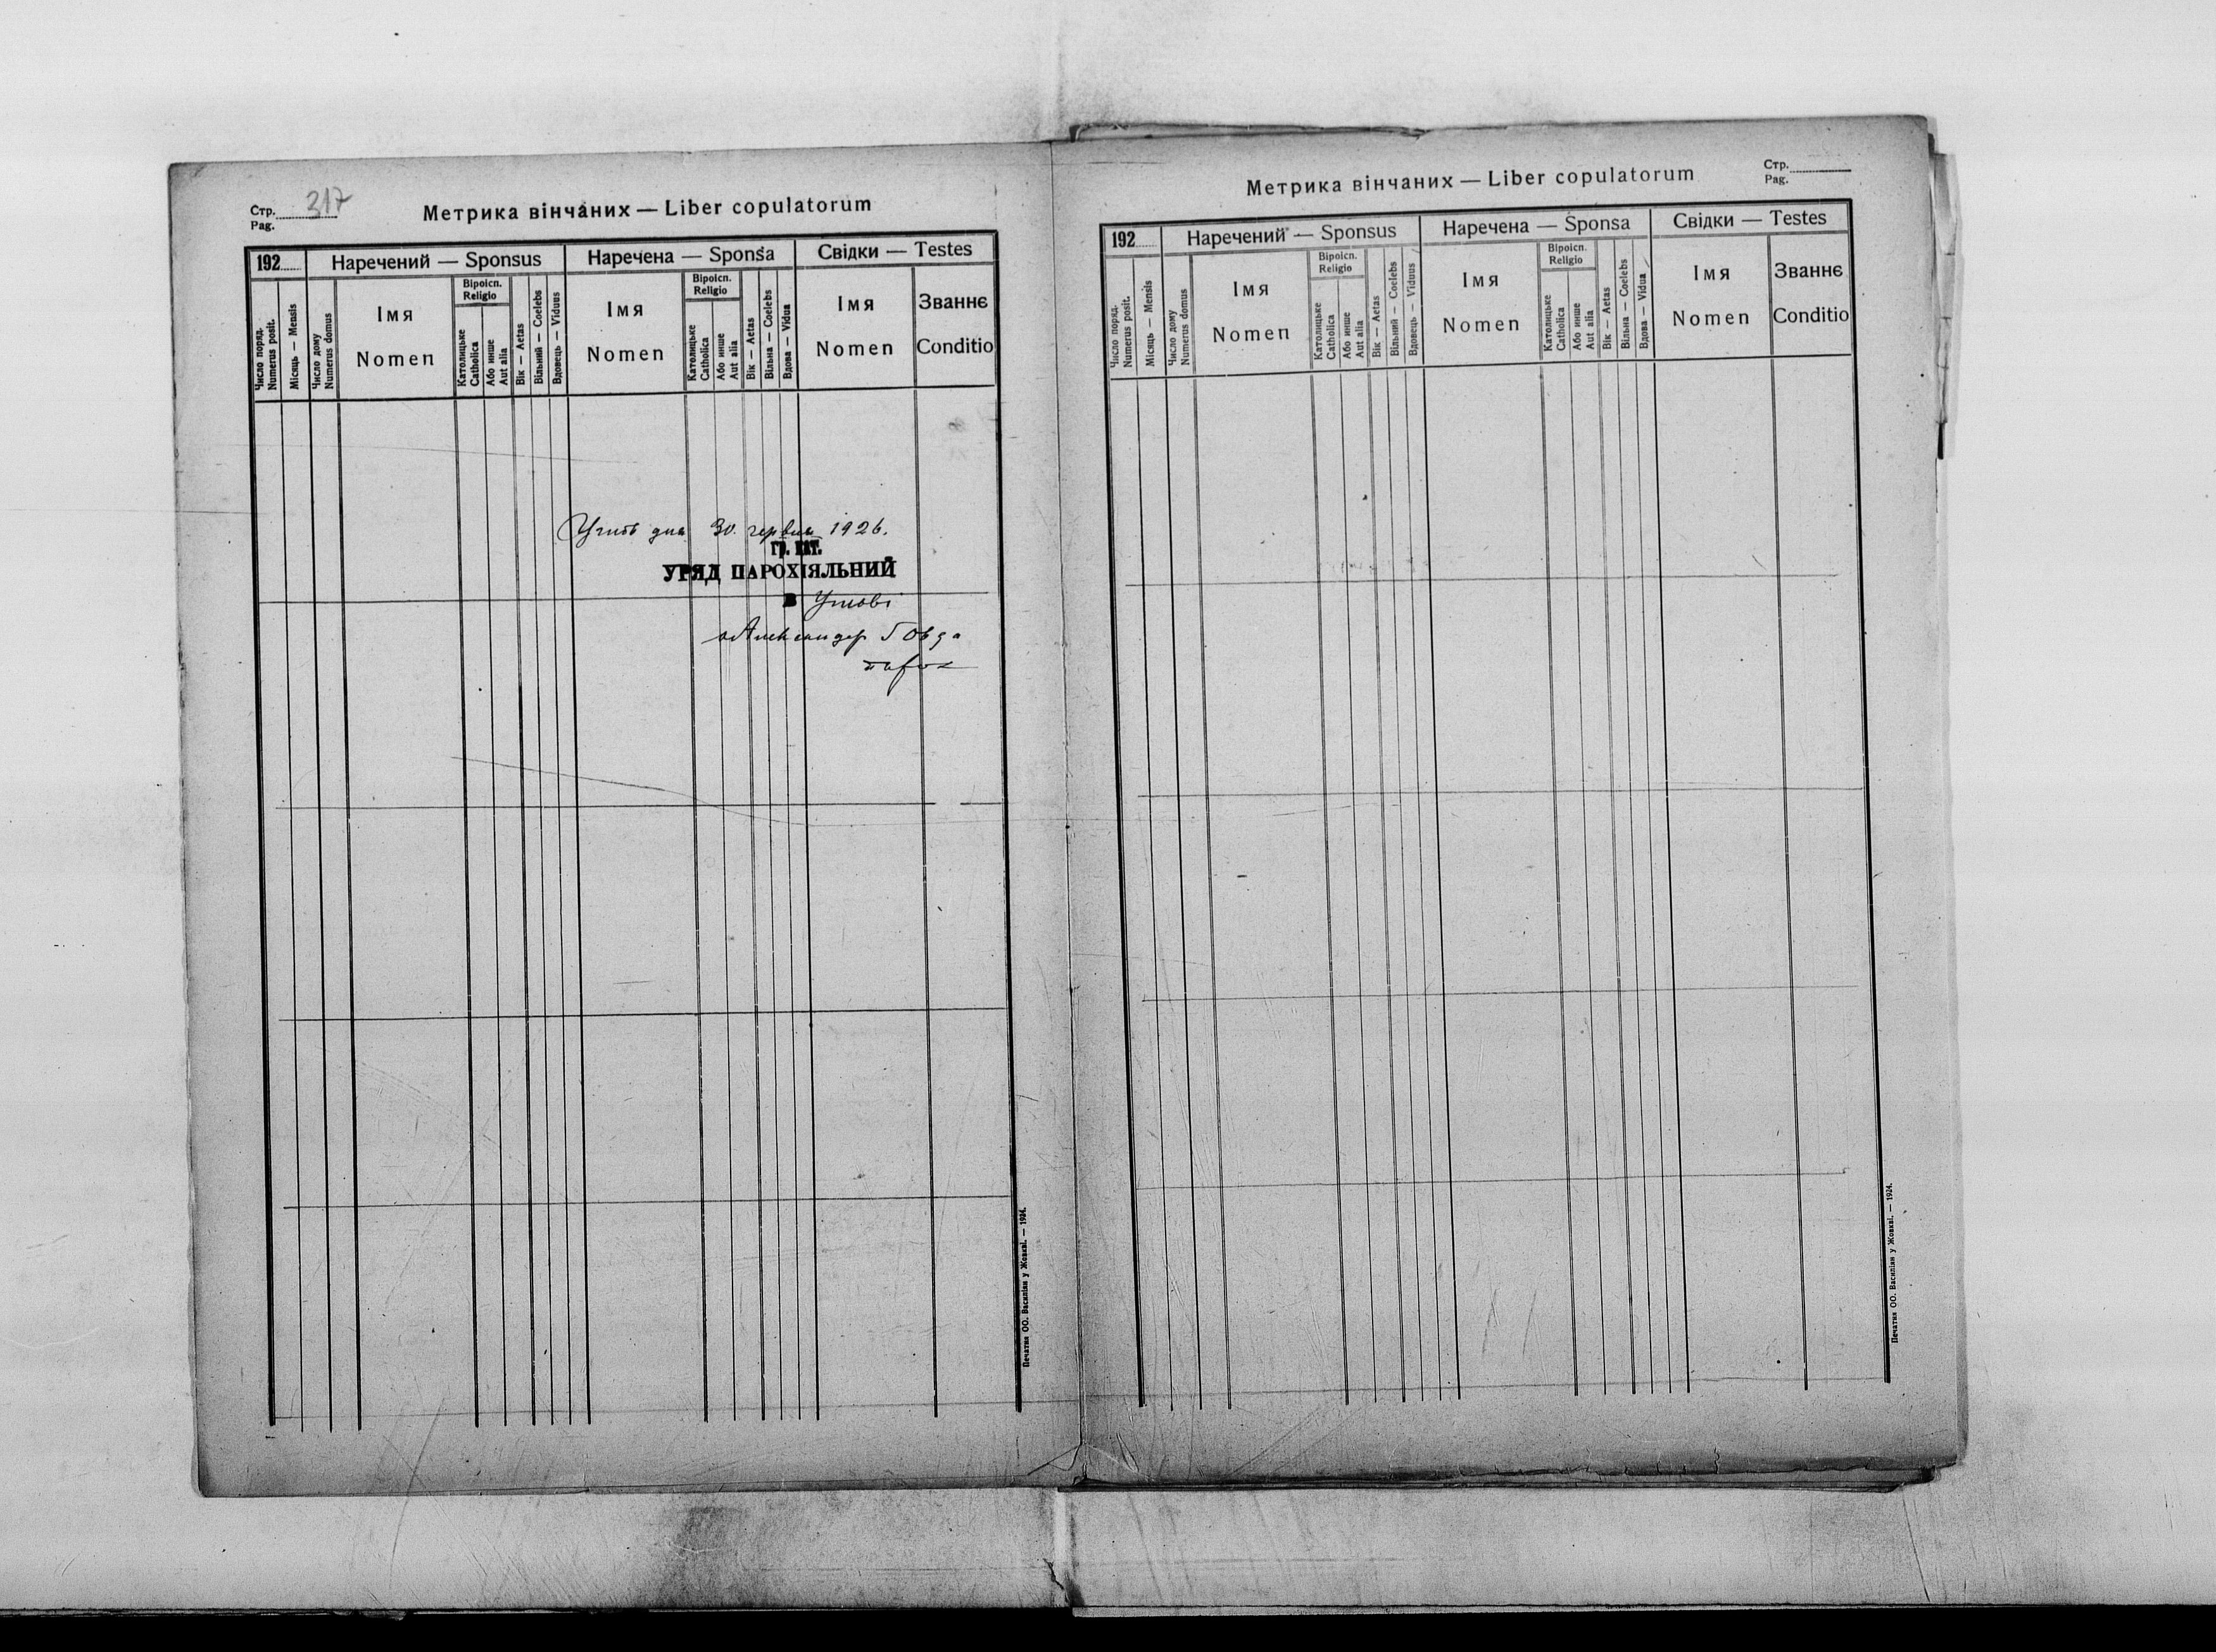 Стр. 317
Pag.
Метрика вінчаних — Liber copulatorum
192
Наречений — Sponsus
Наречена — Sponsa
Свідки — Testes
Число поряд.
Numerus posit.
Місяць — Mensis
Число дому
Numerus domus
Імя
Nomen
Віроісп.
Religio
Католицьке
Catholica
Або инше
Aut alia
Вік — Aetas
Вільний — Coelebs
Вдовець — Viduus
Імя
Nomen
Віроісп.
Religio
Католицьке
Catholica
Або инше
Aut alia
Вік — Aetas
Вільна — Coelebs
Вдова — Vidua
Імя
Nomen
Званнє
Conditio
дня 30. червня 1926.
гр. кат.
УРЯД ПАРОХІЯЛЬНИЙ
в
Александер
парох
Печатня ОО. Василіян у Жовкві. — 1924.
Стр.
Pag.
Метрика вінчаних — Liber copulatorum
192
Наречений — Sponsus
Наречена — Sponsa
Свідки — Testes
Число поряд.
Numerus posit.
Місяць — Mensis
Число дому
Numerus domus
Імя
Nomen
Віроісп.
Religio
Католицьке
Catholica
Або инше
Aut alia
Вік — Aetas
Вільний — Coelebs
Вдовець — Viduus
Імя
Nomen
Віроісп.
Religio
Католицьке
Catholica
Або инше
Aut alia
Вік — Aetas
Вільна — Coelebs
Вдова — Vidua
Імя
Nomen
Званнє
Conditio
Печатня ОО. Василіян у Жовкві. — 1924.